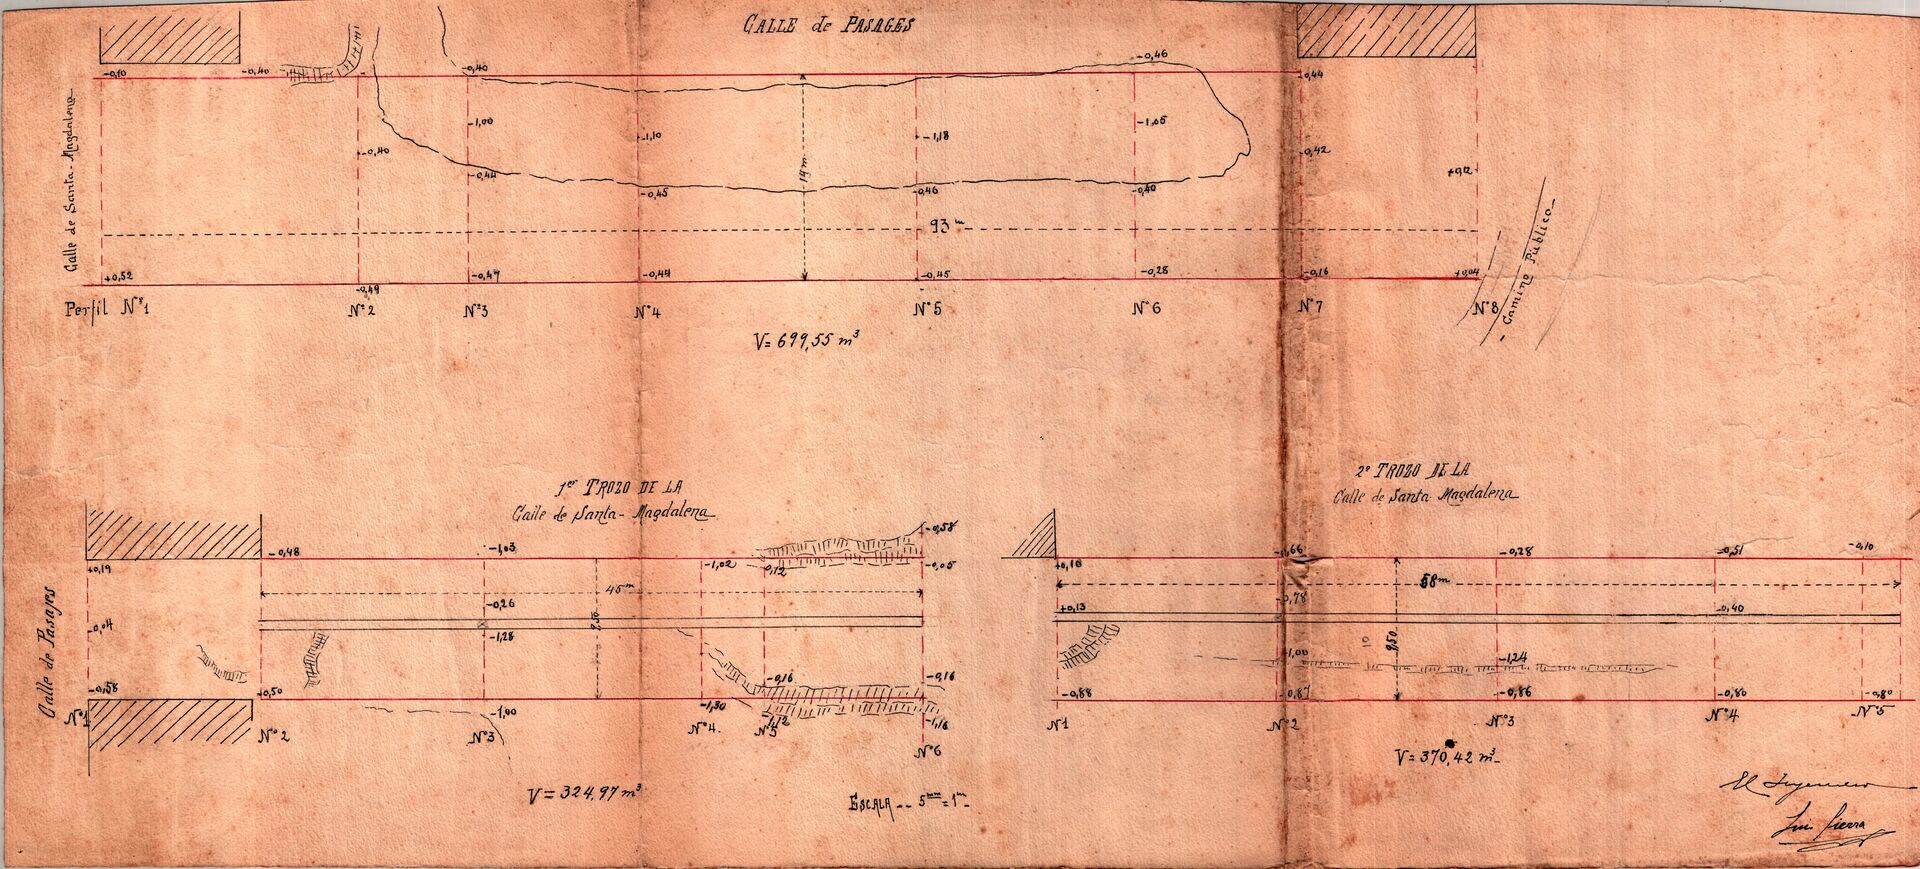 CALLE de PASAGES
-0,10
-0,40
-0,40
-0,46
-0,44
Calle de Santa-Magdalena
-1,00
-1,10
-1,18
-1,05
-0,40
-0,42
+0,12
-0,44
14 m
-0,45
-0,46
-0,40
93 m
Camino Público
+0,52
-0,49
-0,49
-0,44
-0,45
-0,28
-0,16
+0,04
Perfil Nº 1
Nº 2
Nº 3
Nº 4
Nº 5
Nº 6
Nº 7
Nº 8
V = 699,55 m³
1er TROZO DE LA
Calle de Santa-Magdalena
Calle de Pasajes
+0,19
-0,48
-1,03
-1,02
0,12
-0,58
-0,05
45 m
-0,04
-0,26
-1,28
9,50
-0,58
-0,50
-1,00
-1,30
-0,16
-1,12
-0,16
-1,16
Nº 1
Nº 2
Nº 3
Nº 4.
Nº 5
Nº 6
V = 324,97 m³
ESCALA -- 5mm = 1m
2º TROZO DE LA
Calle de Santa Magdalena
-0,28
-0,51
-0,10
58 m
+0,13
-0,78
-0,40
9,50
-1,00
-1,24
-0,88
-0,87
-0,86
-0,80
-0,80
Nº 1
Nº 2
Nº 3
Nº 4
Nº 5
V = 370,42 m³
El Ingeniero
Luis Sierra